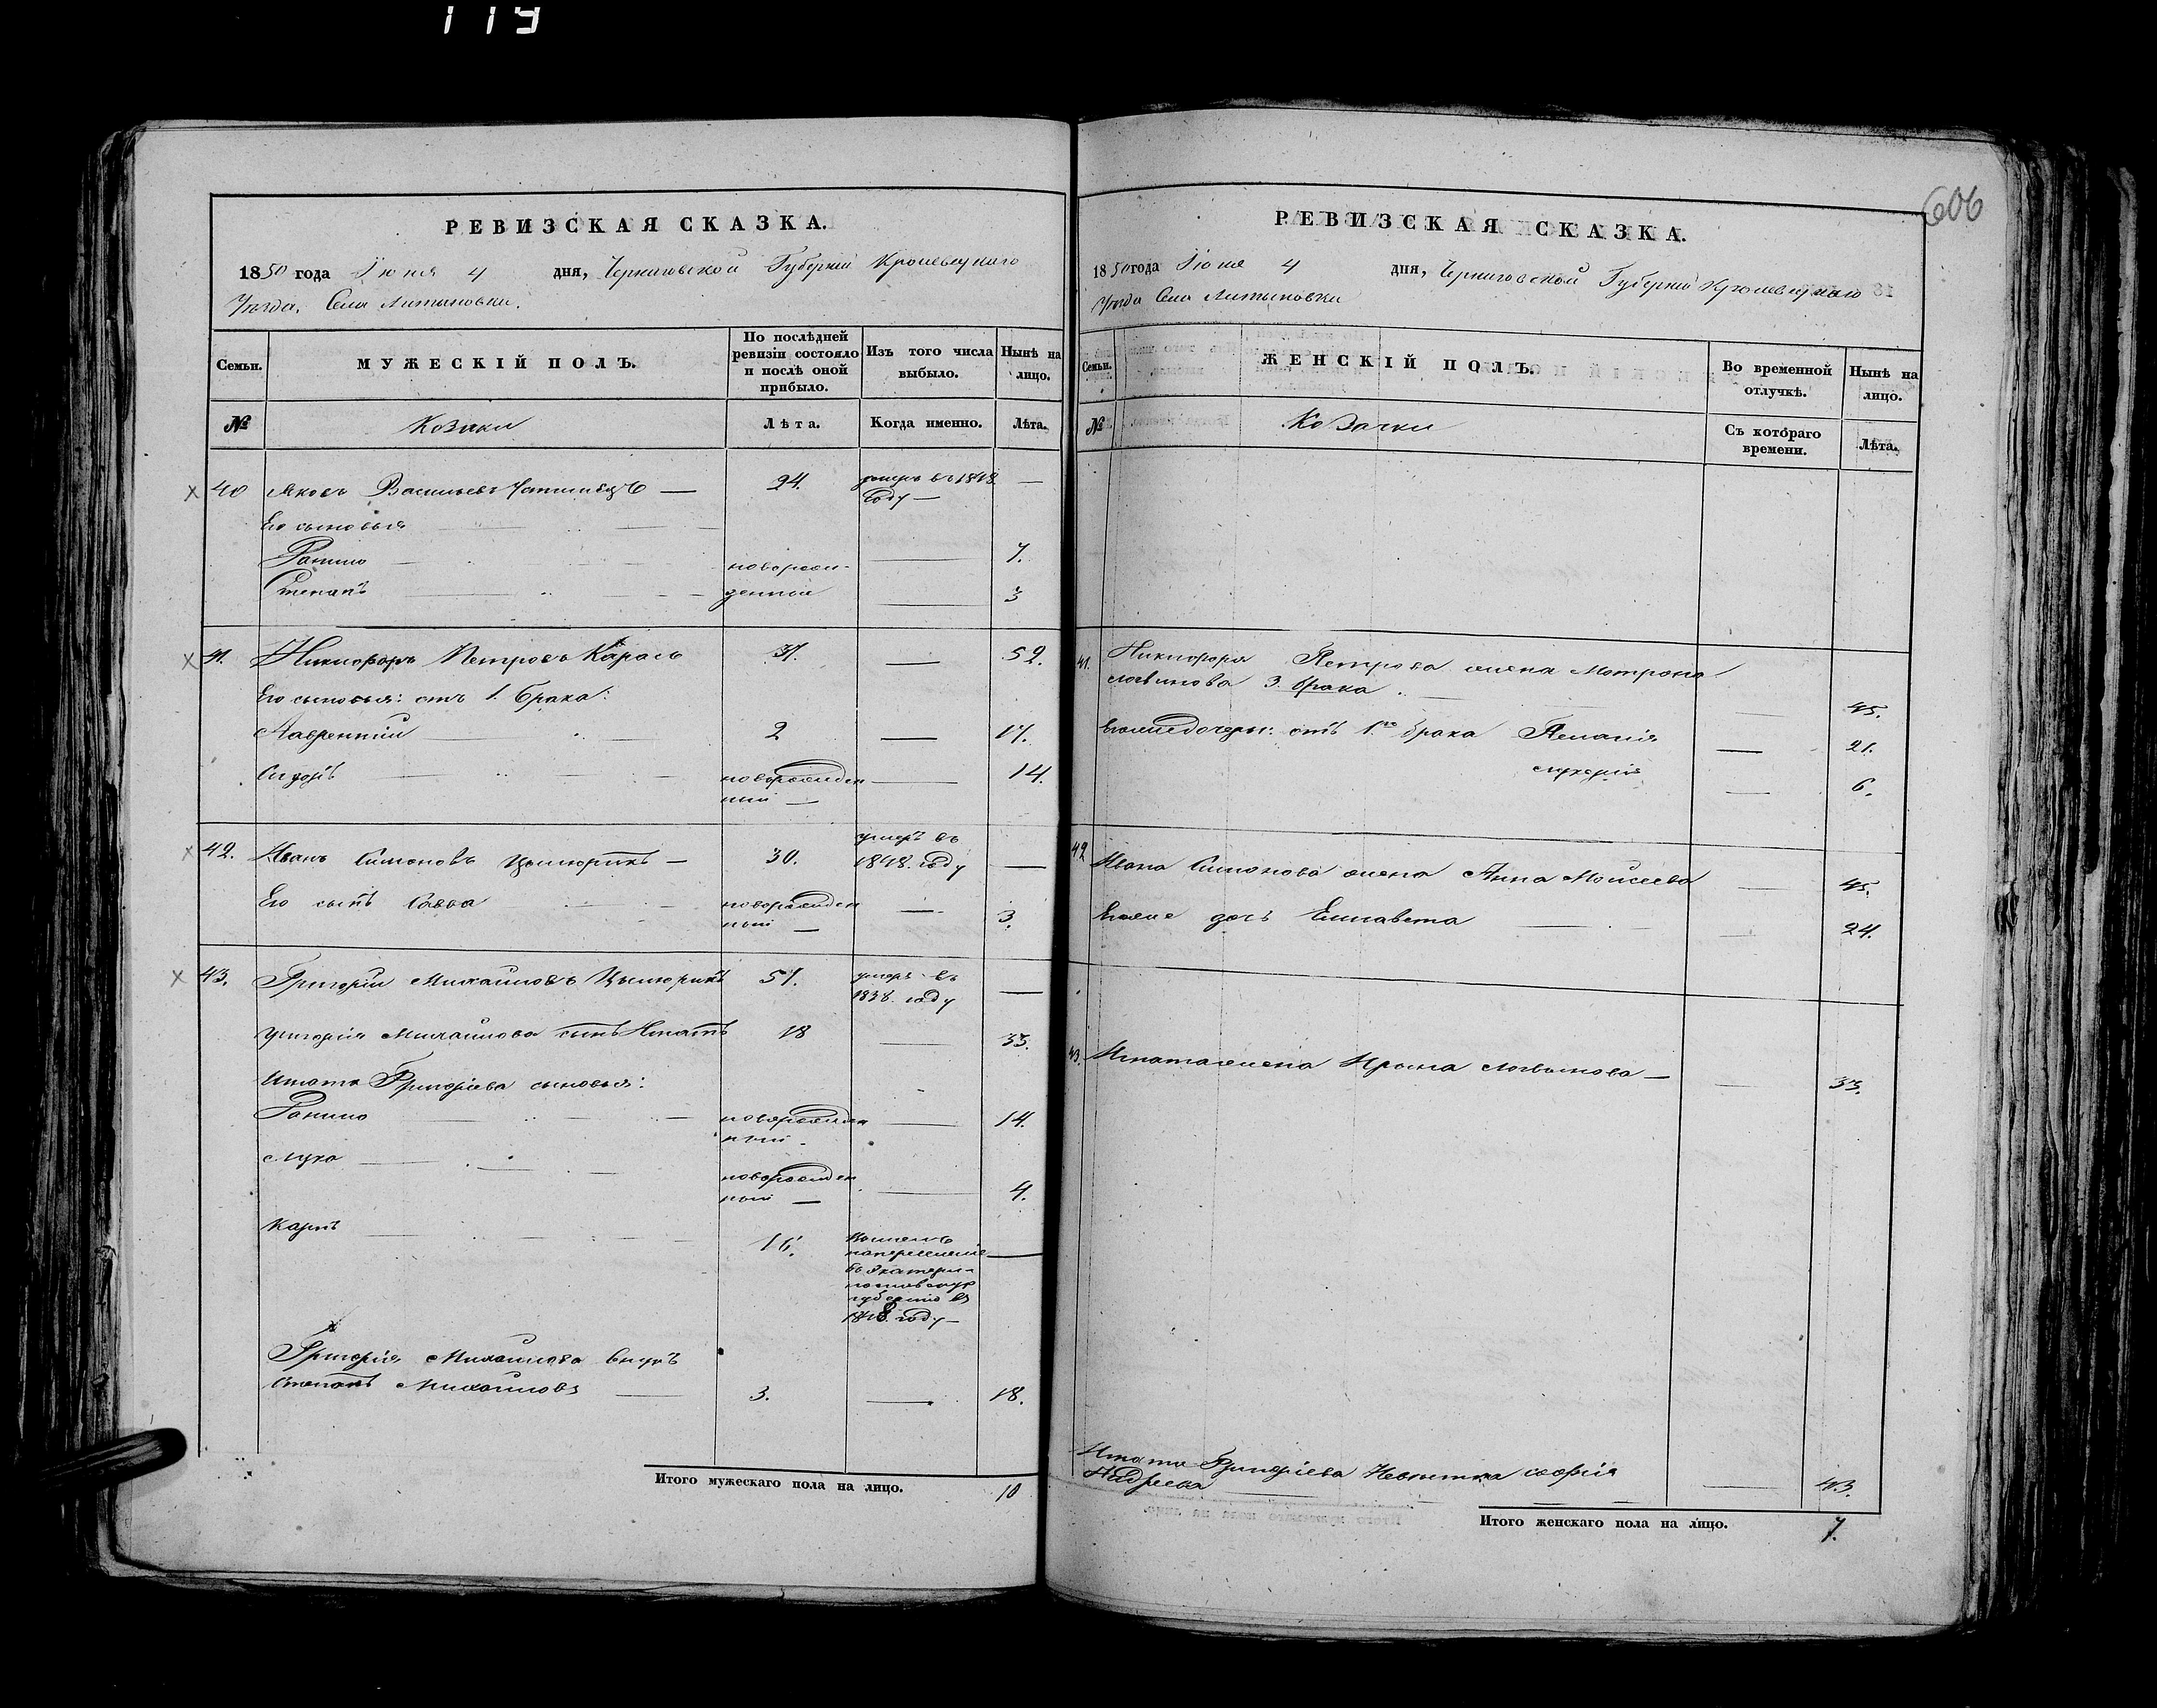 119
606
РЕВИЗСКАЯ СКАЗКА.
1850 года Іюня 4 дня, Черниговской Губерніи Кролевецкаго
Уѣзда, Села Литвиновки.
Семьи.
МУЖЕСКІЙ ПОЛЪ.
По послѣдней ревизіи состояло и послѣ оной прибыло.
Изъ того числа выбыло.
Нынѣ на лицо.
№
Козаки
Лѣта.
Когда именно.
Лѣта.
40 Яковъ Васильевъ — 24. умеръ въ 1848 году — —
Его сыновья
Фанило — новорож- — 7.
Степанъ — денныи — 3
41. Никифоръ Петровъ Карась 37. — 52.
Его сыновья: отъ 1. брака:
Лаврентій — 2 — 17.
Сидоръ — новорожден — 14.
ный —
42. Иванъ Симоновъ — 30. умеръ въ 1848. году —
Его сынъ Савва новорожден — 3.
ный —
43. Григорій Михайловъ 57. умеръ въ 1838. году —
Григорія Михайлова сынъ Игнатъ 18 — 33.
Игната Григоріева сыновья:
новорожден — 14.
ный -
Лука — новорожден — 4.
ный —
Карпъ — 16.
губернію въ
1848. году —
Григорія Михайлова внукъ
Степанъ Михайловъ — 3. — 18.
Итого мужескаго пола на лицо. 10
РЕВИЗСКАЯ СКАЗКА.
1850 года Іюня 4 дня, Черниговской Губерніи Кролевецкаго
Уѣзда Села Литвиновки
Семьи.
ЖЕНСКІЙ ПОЛЪ.
Во временной отлучкѣ.
Нынѣ на лицо.
№
Козачки
Съ котораго времени.
Лѣта.
41. Никифора Петрова жена Матрона
Логвинова 3. брака — 45.
Его же дочери: отъ 1го брака Пелагія — 21.
Лукерія — 6.
42 Ивана Симонова жена Анна Моисеева — 45.
Его же дочь Елисавета — 24.
43. Игната жена Ирина Логвинова — 33.
Игната Григоріева Невѣстка Софія
Андреева — 43.
Итого женскаго пола на лицо. 7.